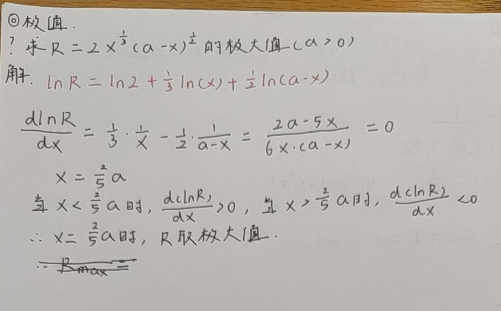 ◎极值.
? 求 R = 2x^{1/3}(a-x)^{1/2} 的极大值(a>0)
解. ln R = ln2 + 1/3 ln(x) + 1/2 ln(a-x)
dlnR/dx = 1/3 · 1/x - 1/2 · 1/(a-x) = (2a-5x)/(6x·(a-x)) = 0
x = 2/5 a
当 x < 2/5 a 时, d(lnR)/dx > 0, 当 x > 2/5 a 时, d(lnR)/dx < 0
∴ x = 2/5 a 时, R 取极大值.
∴ Rmax =